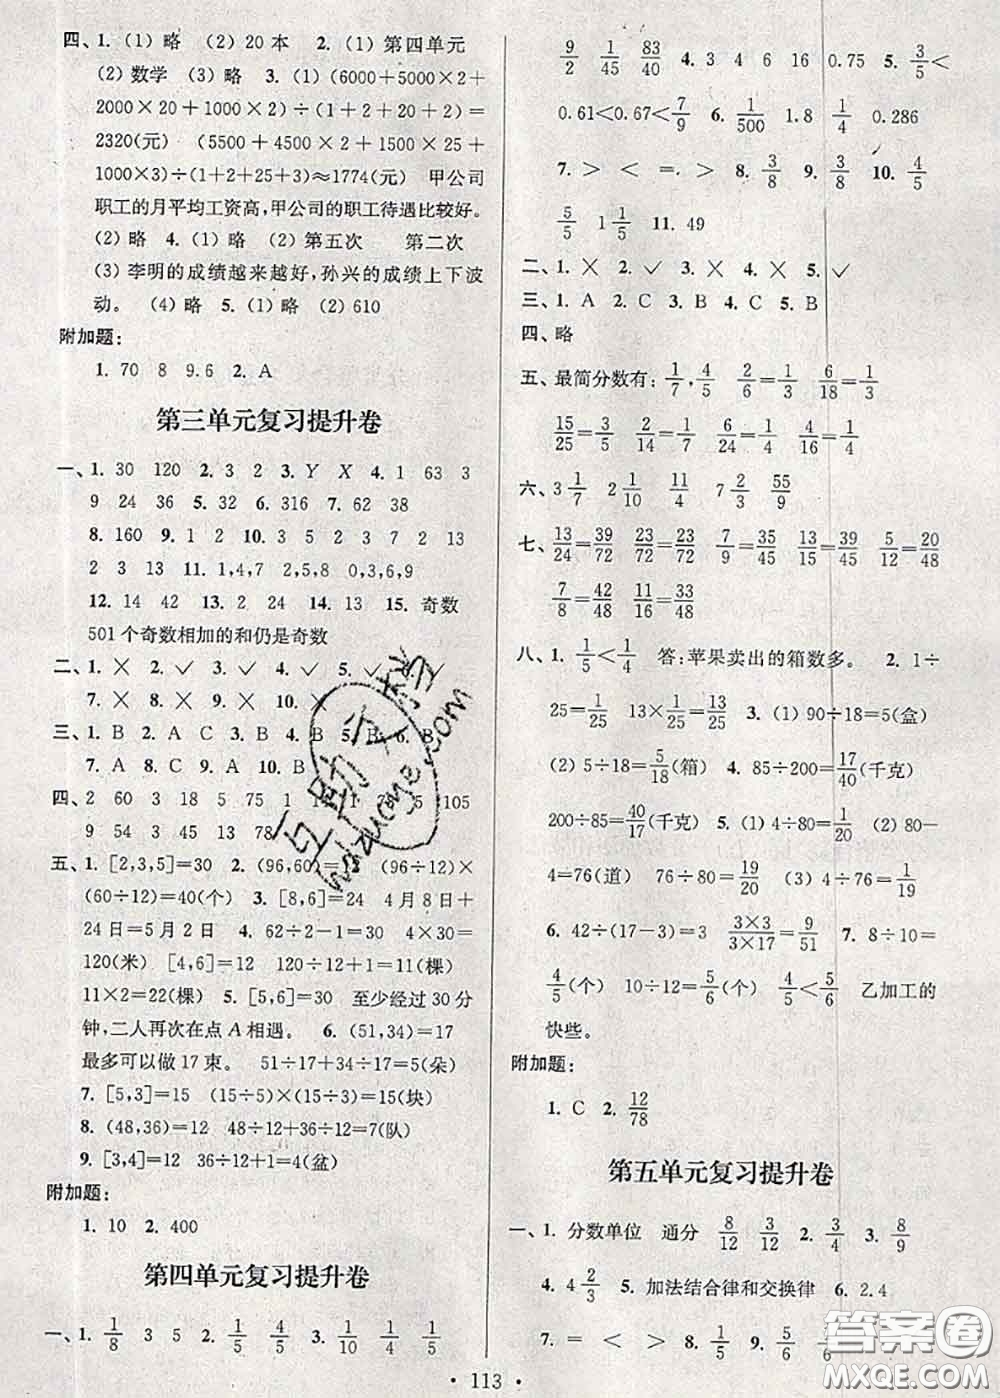 四、1. (1)略 (2)20本 2. (1)第四单元
(2)数学 (3)略 3. (1)(6000+5000×2+
2000×20+1000×2)÷(1+2+20+2)=
2320(元) (5500+4500×2+1500×25+
1000×3)÷(1+2+25+3)≈1774(元) 甲公司
职工的月平均工资高,甲公司的职工待遇比较好。
(2)略 4. (1)略 (2)第五次 第二次
(3)李明的成绩越来越好,孙兴的成绩上下波
动。 (4)略 5. (1)略 (2)610
附加题:
1. 70 8 9.6 2. A
第三单元复习提升卷
一、1. 30 120 2. 3 2 3. Y X 4. 1 63 3
9 24 36 5. 32 6. 316 7. 62 38
8. 160 9. 1 2 10. 3 5 2 3 7 2 13
2 3 13 11. 1,4,7 2,5,8 0,3,6,9
12. 14 42 13. 2 24 14. 13 15. 奇数
501个奇数相加的和仍是奇数
二、1. × 2. ✓ 3. ✓ 4. ✓ 5. ✓
7. × 8. × 9. × 10. ×
三、1. B 2. A 3. B 4. B 5. B 6. B
7. A 8. C 9. A 10. B
四、2 60 3 18 5 75 1 105
9 54 3 45 13 78
五、1. [2,3,5]=30 2. (96,60)=12 (96÷12)×
(60÷12)=40(个) 3. [8,6]=24 4月8日+
24日=5月2日 4. 62÷2-1=30 4×30=
120(米) [4,6]=12 120÷12+1=11(棵)
11×2=22(棵) 5. [5,6]=30 至少经过30分
钟,二人再次在点A相遇。 6. (51,34)=17
最多可以做17束。 51÷17+34÷17=5(朵)
7. [5,3]=15 (15÷5)×(15÷3)=15(块)
8. (48,36)=12 48÷12+36÷12=7(队)
9. [3,4]=12 36÷12+1=4(盆)
附加题:
1. 10 2. 400
第四单元复习提升卷
一、1. 1/8 3 5 2. 1/5 4/5 3. 1/10 4/5 1/5
9/2 1/45 83/40 4. 3 4 6 16 0.75 5. 3/5<
0.61<0.67<7/9 6. 1/500 1.8 1/4 0.286
7. > < = > 8. 3/8 9. 3/8 10. 4/5
5/5 1 1/5 11. 49
二、1. × 2. ✓ 3. × 4. × 5. ✓
三、1. A 2. C 3. B 4. C 5. B
四、略
五、最简分数有: 1/7, 4/5 2/6=1/3 6/18=1/3
15/25=3/5 2/14=1/7 6/24=1/4 4/16=1/4
六、3 1/7 2 1/10 11/4 7 2/3 55/9
七、13/24=39/72 23/36... 7/9=35/45 13/15=39/45 5/12=20/48
7/8=42/48 11/16=33/48
八、1. 1/5<1/4 答:苹果卖出的箱数多。 2. 1÷
25=1/25 13×1/25=13/25 3. (1)90÷18=5(盒)
(2)5÷18=5/18(箱) 4. 85÷200=17/40(千克)
200÷85=40/17(千克) 5. (1)4÷80=1/20 (2)80-
4=76(道) 76÷80=19/20 (3)4÷76=1/19
6. 42÷(17-3)=3 3×3/3×17=9/51 7. 8÷10=
4/5(个) 10÷12=5/6(个) 4/5<5/6 乙加工的
快些。
附加题:
1. C 2. 12/78
第五单元复习提升卷
一、1. 分数单位 通分 8/12 3/12 2. 3/4 3. 8/9
4. 4 2/3 5. 加法结合律和交换律 6. 2.4
7. = < > 8. 1/5 9. 5/6
· 113 ·
答案圈
MXQE.COM